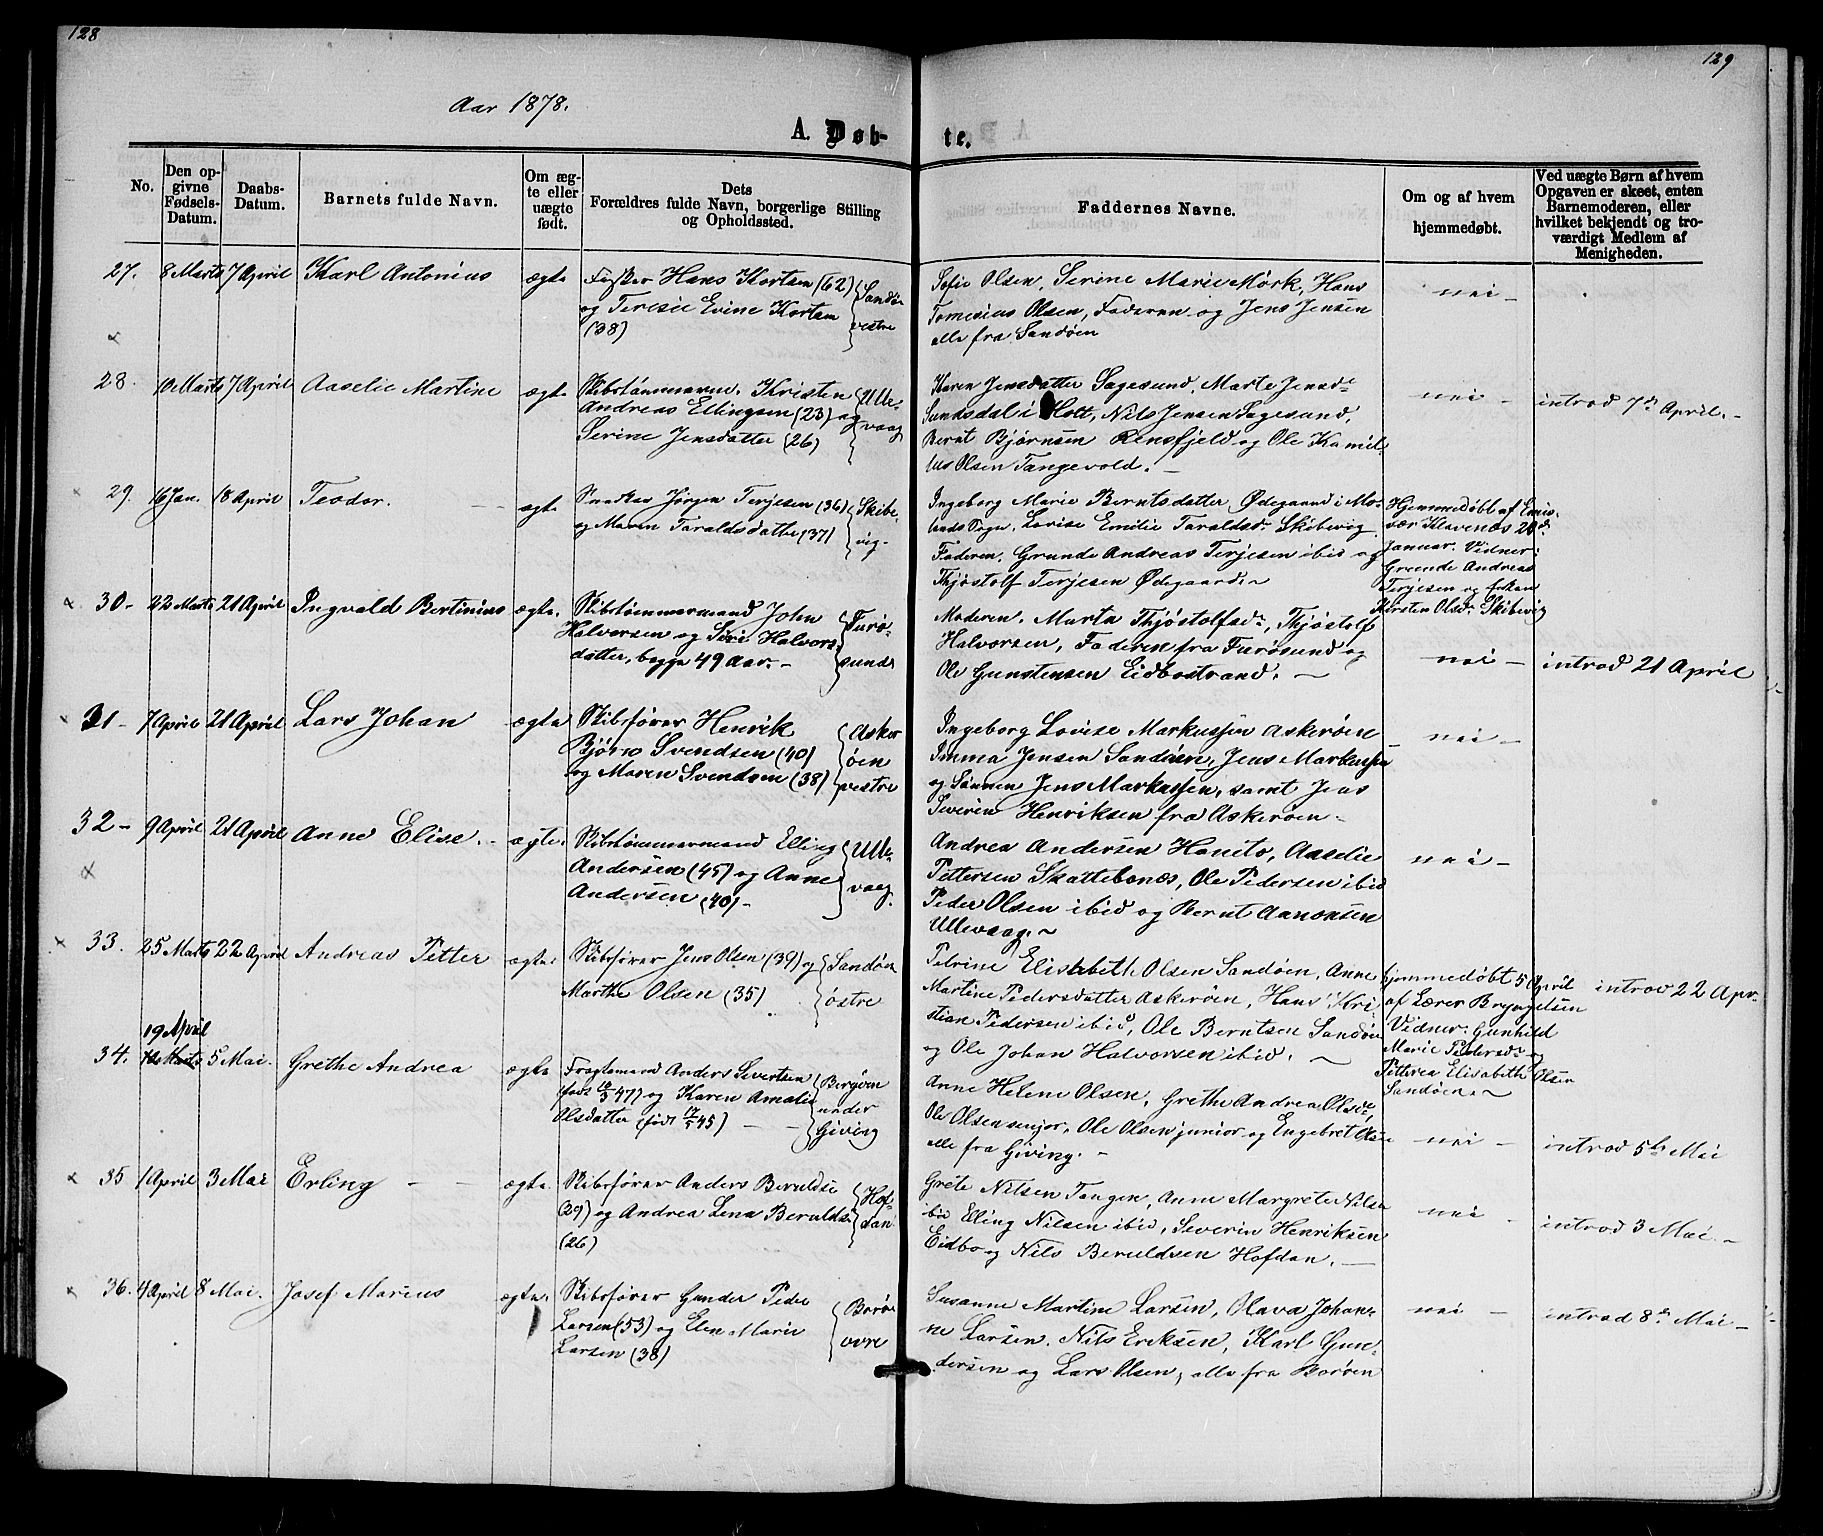 128
129
Aar 1878.
A. Døb-
te.
No.
Den op-
givne
Fødsels-
Datum.
Daabs-
Datum.
Barnets fulde Navn.
Om æg-
te eller
uægte
født.
Dets
Forældres fulde Navn, borgerlige Stilling
og Opholdssted.
Faddernes Navne.
Om og af hvem
hjemmedøbt.
Ved uægte Børn af hvem
Opgaven er skeet, enten
Barnemoderen, eller
hvilket bekjendt og tro-
værdigt Medlem af
Menigheden.
27. 8 Marts 7 April Karl Antonius ægte
Fisker Hans Kortsen (62)
og Teresie Evine Kortsen
(38)
Sandøen
vestre
Sofie Olsen, Serine Marie Mørk, Hans
Tomesius Olsen, Faderen og Jens Jensen
alle fra Sandøen
nei -
28. 10 Marts 7 April Aaselie Martine ægte
Skibstømmermand Kristen
Andreas Ellingsen (23) og
Serine Jensdatter (26)
Ulle-
vaag
Karen Jensdatter Sagesund, Marte Jensd.
Sundsdal i Holt, Nils Jensen Sagesund,
Bernt Bjørnsen Rensfjeld og Ole Kamil-
lus Olsen Tangevold. -
nei -
introd 7de April. -
29. 16 Jan. 18 April Teodor. ægte
Snedker Jørgen Terjesen (36)
og Maren Taraldsdatter (37)
Skibe-
vig.
Ingeborg Marie Berntsdatter Ødegaard i Mo-
lands Sogn, Lovise Emilie Taraldsd. Skibevig
Faderen, Grunde Andreas Terjesen ibid og
Thjøstolf Terjesen Ødegaard. -
Hjemmedøbt af Emis-
sær Klavenæs 20de
Januar. Vidner:
Grunde Andreas
Terjesen og Enken
Kirsten Olsd. Skibevig
30 - 22 Marts 21 April Ingvald Bertinius ægte.
Skibstømmermand John
Halvorsen og Siri Halvors-
datter, begge 49 Aar. -
Furø-
sund
Moderen, Marta Thjøstolfsd., Thjøstolf
Halvorsen, Faderen fra Furøsund og
Ole Gunstensen Eidbostrand. -
nei -
introd 21 April
31 - 7 April 21 April Lars Johan ægte
Skibsfører Henrik
Bjørn Svendsen (40)
og Maren Svendsen (38)
Asker
øen
vestre
Ingeborg Lovise Markussen Askerøen
Imma Jensen Sandøen, Jens Markussen
og Sønnen Jens Markussen, samt Jens
Severin Henriksen fra Askerøen -
nei -
32 - 9 April 21 April Anne Elise. - ægte.
Skibstømmermand Elling
Andersen (45) og Anne
Andersen (40) -
Ulle-
vaag.
Andrea Andersen Haneto, Aaselie
Pettersen Skattebonæs, Ole Pedersen ibid
Peder Olsen ibid og Bernt Aanonsen
Ullevaag. -
nei -
33. 25 Marts 22 April Andreas Petter ægte.
Skibsfører Jens Olsen (39) og
Marthe Olsen (35)
Sandøen
østre
Petrine Elisabeth Olsen Sandøen, Anne
Martine Pedersdatter Askerøen, Hans Kri-
stian Pedersen ibid, Ole Berntsen Sandøen
og Ole Johan Halvorsen ibid. -
hjemmedøbt 5 April
af Lærer Bryngelsen
Vidner: Gunhild
Marie Pedersd. og
Petrea Elisabeth Olsen
Sandøen. -
introd 22 Apr.
19 April
34. 5 Mai. Grethe Andrea ægte
Fragtemand Anders Sivertsen
og Karen Amalie
Olsdatter
Bergøen
under
Giving
Anne Helene Olsen, Grethe Andrea Olsd.,
Ole Olsen senjor, Ole Olsen junior og Engebret Olsen
alle fra Giving. -
nei -
introd 5te Mai
35 1 April 3 Mai Erling - - ægte.
Skibsfører Anders Beruldsen
(29) og Andrea Lena Beruldsen
(26)
Hof-
dan
Grete Nilsen Tangen, Anne Margrete Nilsen
ibid Eling Nilsen ibid, Severin Henriksen
Eidbo og Nils Beruldsen Hofdan. -
nei -
introd 3 Mai. -
36. 4 April 8 Mai. Josef Marius ægte.
Skibsfører Gunder Peder
Larsen (53) og Elen Marie
Larsen (38)
Borøen
øvre
Susanne Martine Larsen, Olava Johan-
ne Larsen, Nils Eriksen, Karl Gun-
dersen og Lars Olsen, alle fra Borøen
nei -
introd 8de Mai -